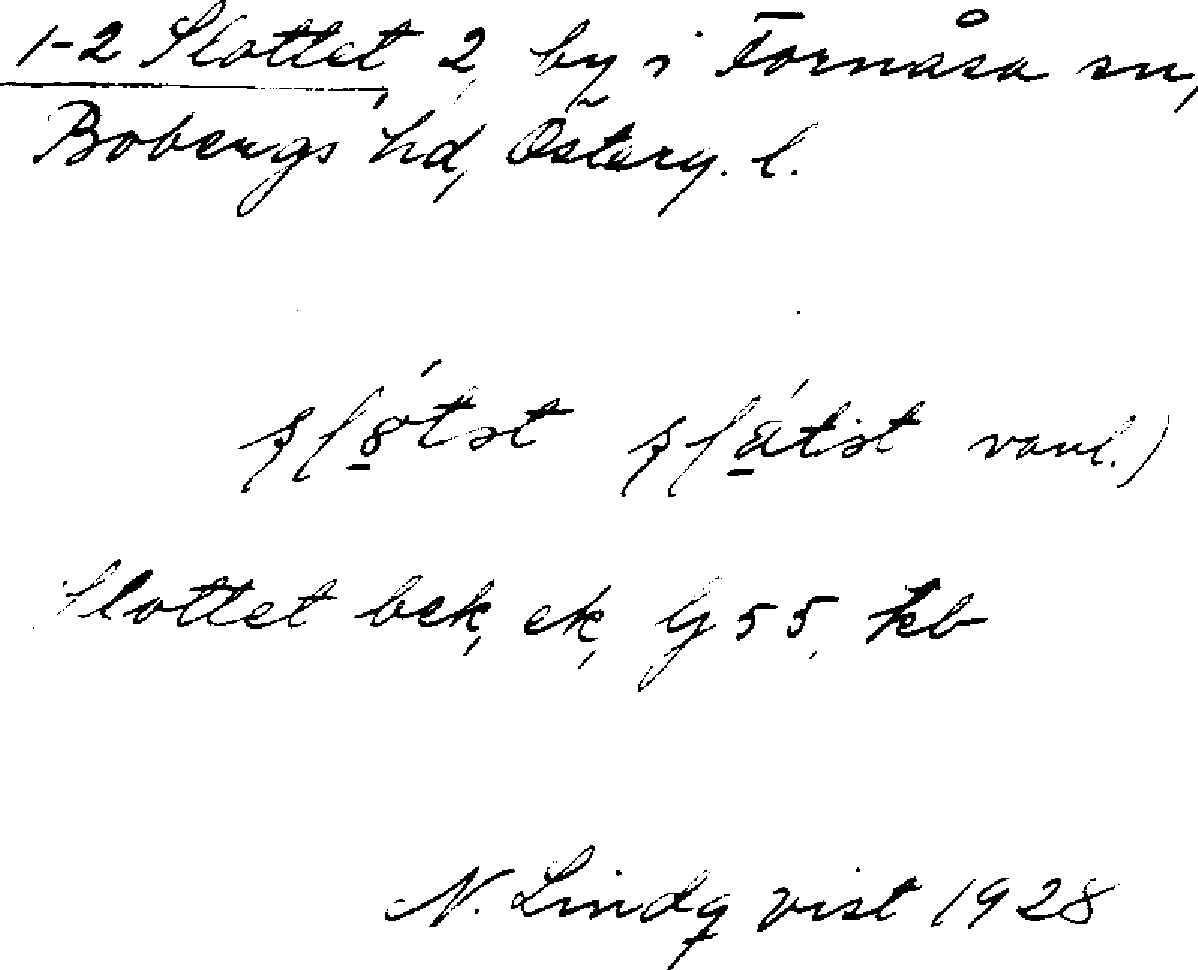 1-2 Slottet, 2, by i Fornåsa sn,
Bobergs hd, Österg. l.
vanl.)
Slottet bek, ek, G 55, kb
N. Lindqvist 1928